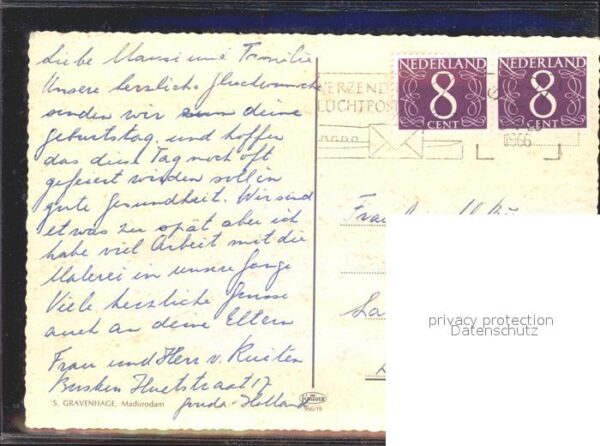 Liebe Mausi und Familie
Unsere herzliche Glückwunsche
senden wir zum deine
geburtstag. und hoffen
das dien Tag noch oft
gefeiert wirden soll in
gute gesundheit. Wir sind
etwas zu spät aber ich
habe viel Arbeit mit die
Malerei in unsere
Viele herzliche Grusse
auch an deine Eltern
Frau und Herr v. Ruiten
Busken Huetstraat 17
Gouda-Holland
'S. GRAVENHAGE, Madurodam
966/19
VERZEND
LUCHTPOST
NEDERLAND
8
CENT
NEDERLAND
8
CENT
1966
Frau
privacy protection
Datenschutz